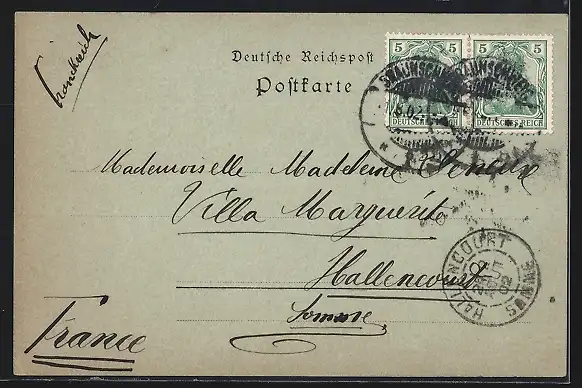 Frankreich
Deutsche Reichspost
Postkarte
5 5 5 5
DEUTSCHES REICH DEUTSCHES REICH
BRAUNSCHWEIG
Mademoiselle Madeleine
Villa Marguerite
Hallencourt
Somme
France
HALLENCOURT
SOMME
02